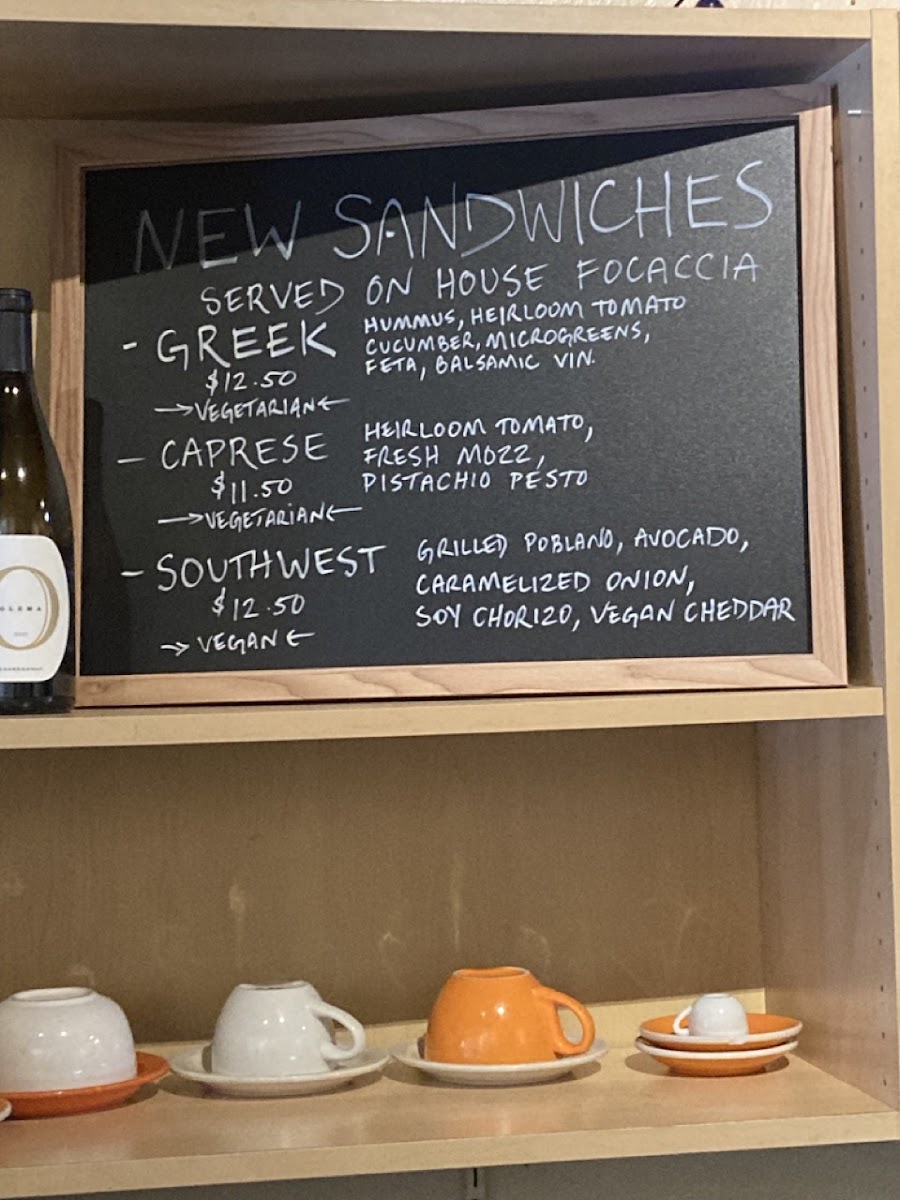 NEW SANDWICHES
SERVED ON HOUSE FOCACCIA
- GREEK
$12.50
→VEGETARIAN←
HUMMUS, HEIRLOOM TOMATO
CUCUMBER, MICROGREENS,
FETA, BALSAMIC VIN.
- CAPRESE
$11.50
→VEGETARIAN←
HEIRLOOM TOMATO,
FRESH MOZZ,
PISTACHIO PESTO
- SOUTHWEST
$12.50
→VEGAN←
GRILLED POBLANO, AVOCADO,
CARAMELIZED ONION,
SOY CHORIZO, VEGAN CHEDDAR